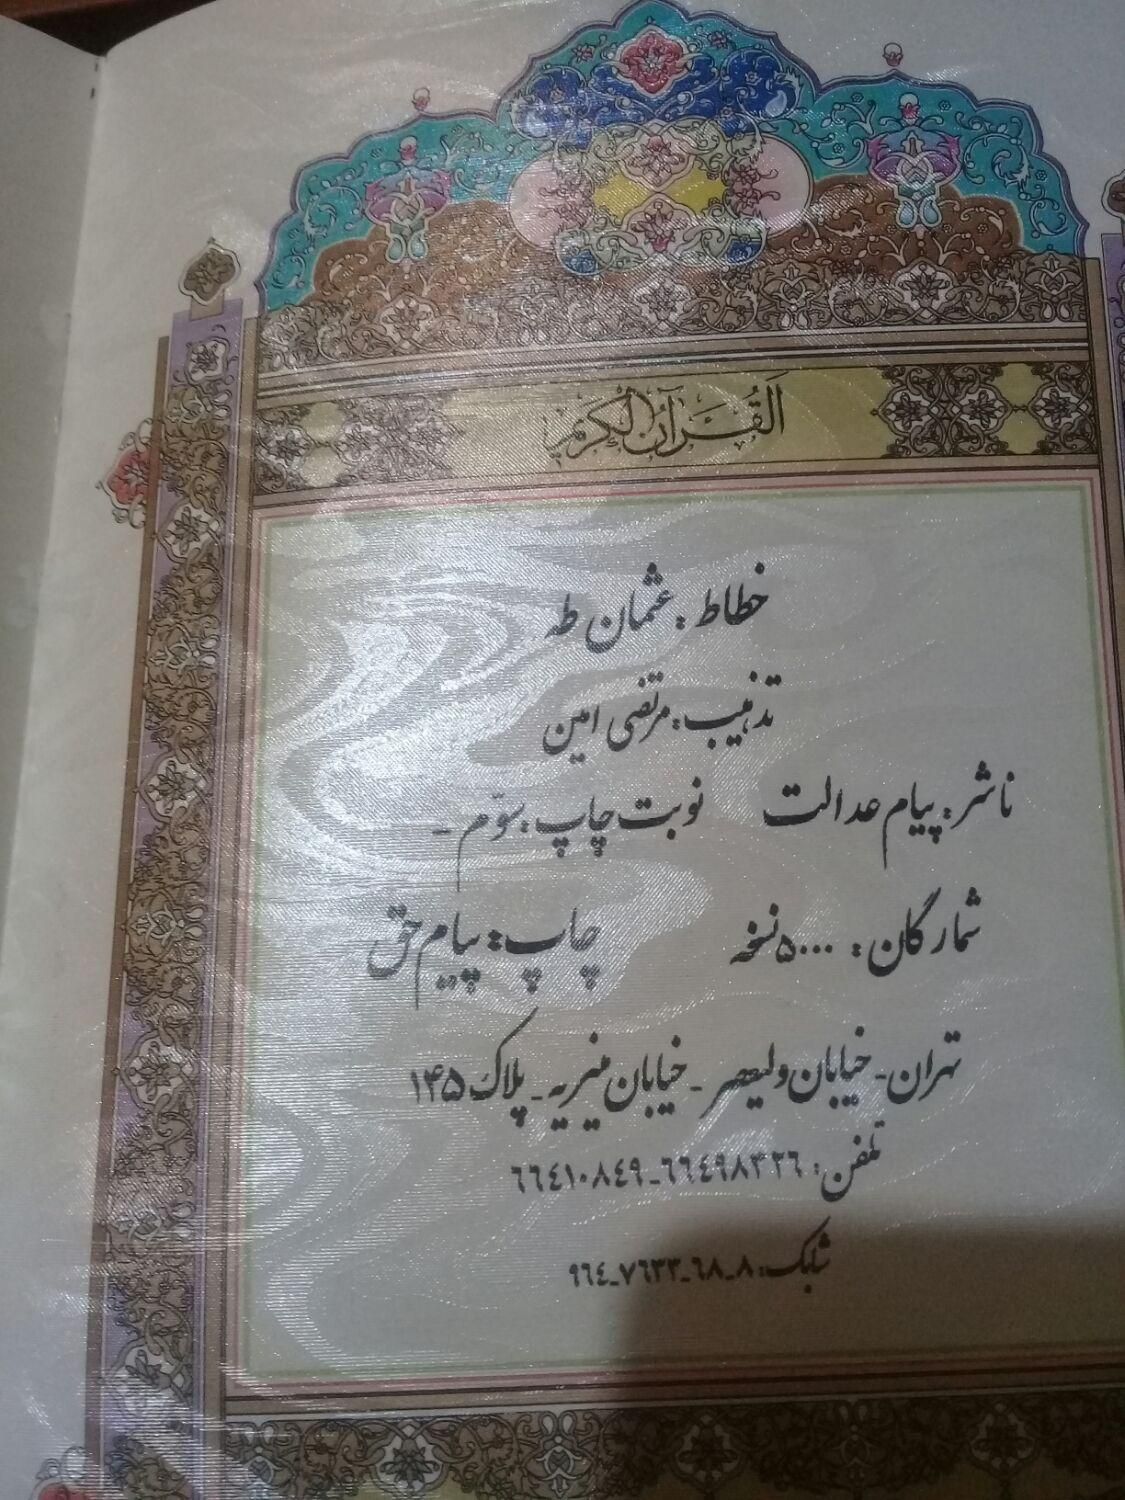 القُرآنُ الكَريم
خطاط : عثمان طه
تذهیب : مرتضی امین
ناشر : پیام عدالت نوبت چاپ : سوّم -
شمارگان : ۵۰۰۰ نسخه چاپ : پیام حق
تهران - خیابان ولیعصر - خیابان منیریه - پلاک ۱۴۵
تلفن : ٦٦٤٩٨٣٢٦ - ٦٦٤١٠٨٤٩
شابک : ٨ - ٦٨ - ٧٦٣٣ - ٩٦٤